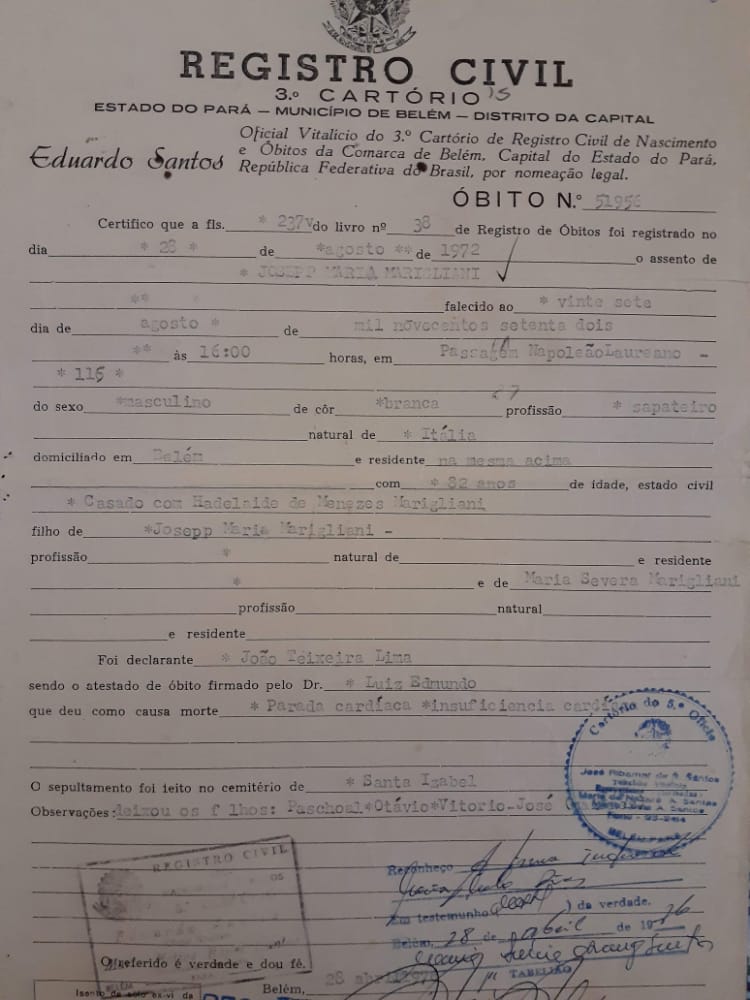 REGISTRO CIVIL
3.º CARTÓRIO
ESTADO DO PARÁ — MUNICÍPIO DE BELÉM — DISTRITO DA CAPITAL
Eduardo Santos
Oficial Vitalício do 3.º Cartório de Registro Civil de Nascimento
e Óbitos da Comarca de Belém, Capital do Estado do Pará,
República Federativa do Brasil, por nomeação legal.
ÓBITO N.º 51956
Certifico que a fls. * 237v do livro nº 38 de Registro de Óbitos foi registrado no
dia * 28 * de *agosto ** de 1972 o assento de
* JOSEPP MARIA MARIGLIANI
** falecido ao * vinte sete
dia de agosto * de mil novecentos setenta dois
** às 16:00 horas, em Passagem NapoleãoLaureano -
* 115 *
do sexo *masculino de côr *branca profissão * sapateiro
natural de * Itália
domiciliado em Belém e residente na mesma acima
com * 82 anos de idade, estado civil
* Casado com Hadelaide de Menezes Marigliani
filho de *Josepp Maria Marigliani -
profissão * natural de e residente
* e de Maria Severa Marigliani
profissão natural
e residente
Foi declarante * João Teixeira Lima
sendo o atestado de óbito firmado pelo Dr. * Luiz Edmundo
que deu como causa morte * Parada cardíaca *insuficiencia
O sepultamento foi feito no cemitério de * Santa Izabel
Observações: deixou os f lhos: Paschoal*Otávio*Vitorio-José
Cartório do 5.º Ofício
José Ribamar de S. Santos
BELÉM PARÁ
REGISTRO CIVIL
Reconheço a firma
Em testemunho ) da verdade.
Belém, 28 de abril de 1976
TABELIÃO
O referido é verdade e dou fé.
Belém, 28 abril